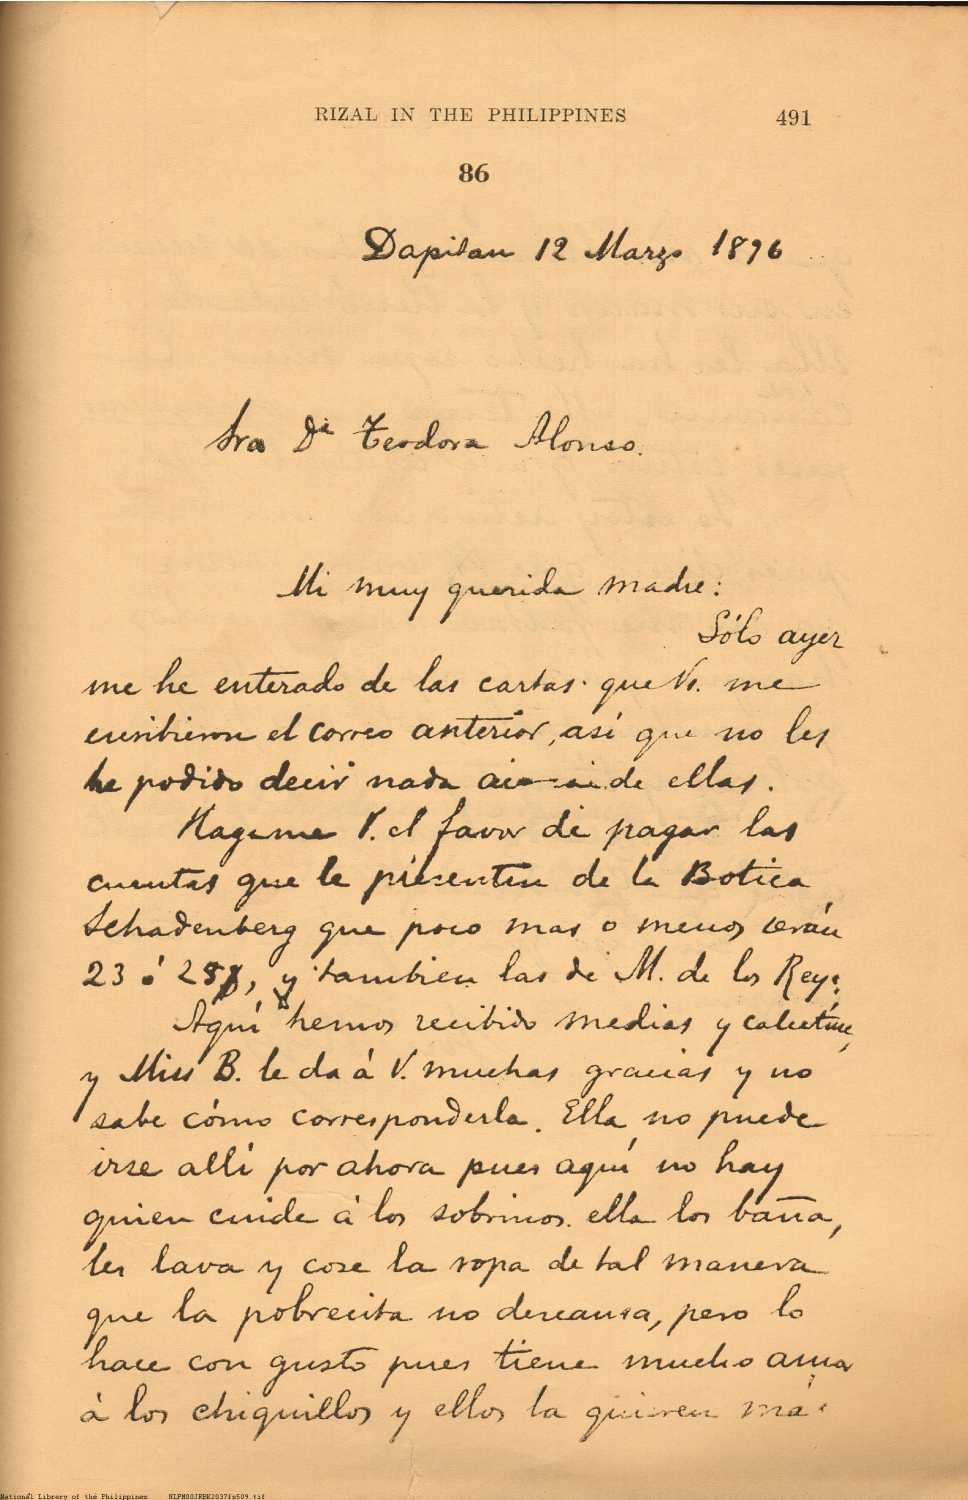 RIZAL IN THE PHILIPPINES 491
86
Dapitan 12 Marzo 1896
Sra Dª Teodora Alonso.
Mi muy querida madre:
Sólo ayer
me he enterado de las cartas que Vs. me
escribieron el correo anterior, así que no les
he podido decir nada de ellas.
Hagame V. el favor de pagar las
cuentas que le presenten de la Botica
Schadenberg que poco mas o menos serán
23 ó 25$, y tambien las de M. de los Reyes
Aquí hemos recibido medias y calcetines,
y Miss B. le da á V. muchas gracias y no
sabe cómo corresponderla. Ella no puede
irse allí por ahora pues aquí no hay
quien cuide á los sobrinos. ella los baña,
les lava y cose la ropa de tal manera
que la pobrecita no descansa, pero lo
hace con gusto pues tiene mucho amor
á los chiquillos y ellos la quieren más
National Library of the Philippines NLPM00JRBK2037fs509.tif